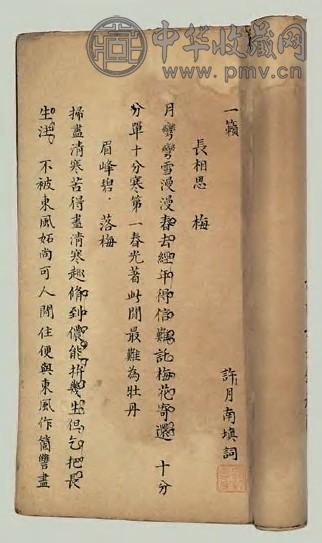 中华收藏网
www.pmv.cn
一籟 許月南填詞
長相思 梅
月彎彎雪漫漫春去經年得信難託梅花寄還 十分
分單十分寒第一春光著此間最難為牡丹
眉峰碧·落梅
掃盡清寒苦得盡清寒趣修到儂能拚幾生但乞把長
生注 不被東風妬尚可人間住便與東風作箇讐盡